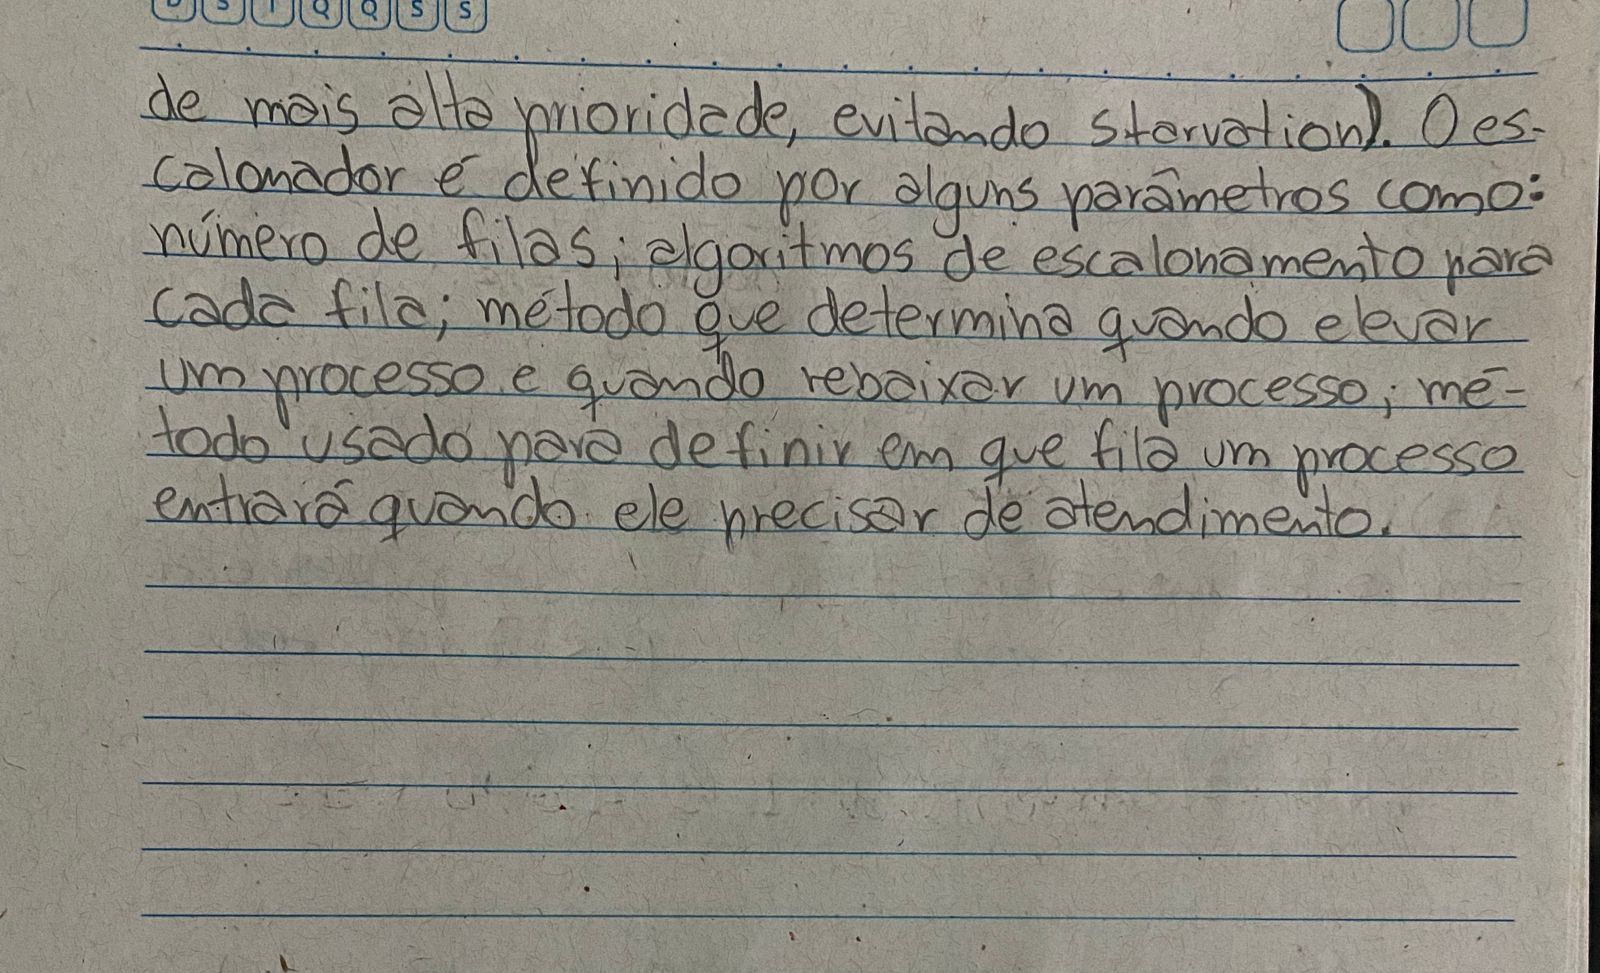 D S T Q Q S S
de mais alta prioridade, evitando starvation). O es-
calonador é definido por alguns parâmetros como:
número de filas; algoritmos de escalonamento para
cada fila; método que determina quando elevar
um processo e quando rebaixar um processo; mé-
todo usado para definir em que fila um processo
entrará quando ele precisar de atendimento.